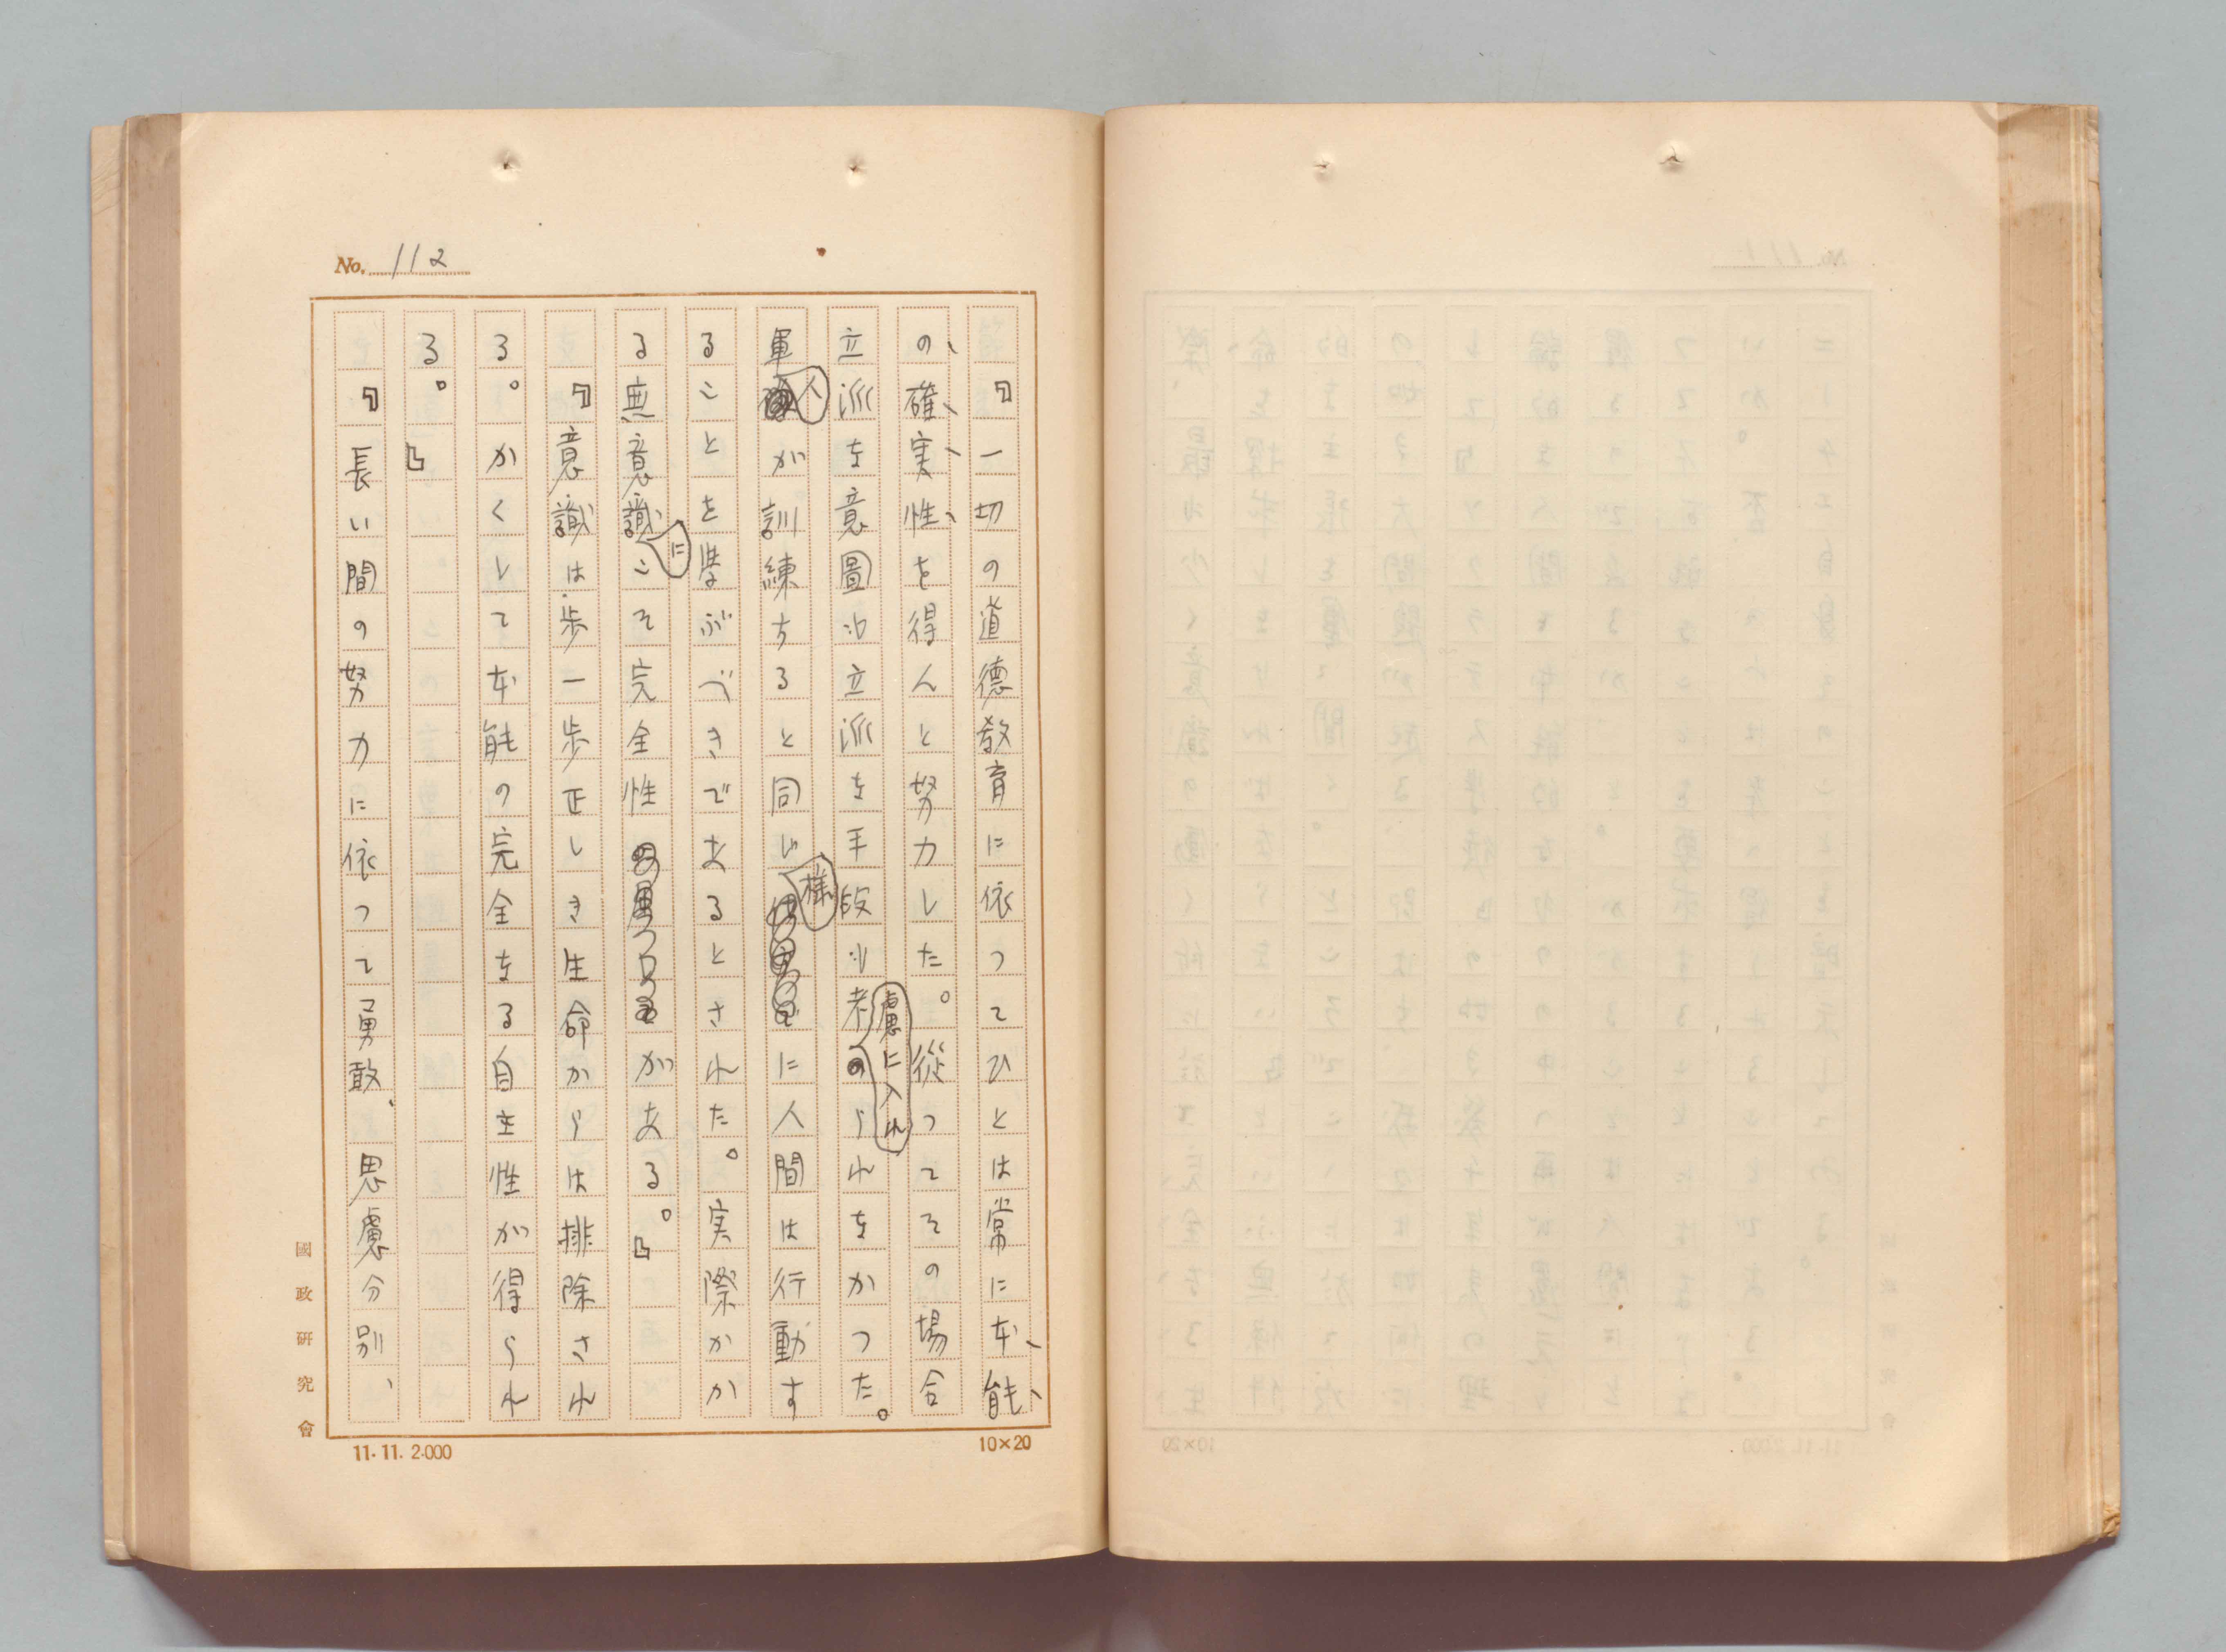 No. 112
『一切の道德教育に依つてひとは常に本能
の確実性を得んと努力した。從つてその場合
立派な意圖も立派な手段も考慮に入れられなかつた。
軍人が訓練すると同じ様に人間は行動す
ることを学ぶべきであるとされた。実際かか
る無意識にこそ完全性がある。』
『意識は歩一歩正しき生命からは排除され
る。かくして本能の完全なる自主性が得られ
る。』
『長い間の努力に依つて勇敢、思慮分別、
國政研究會
11.11.2.000
10×20